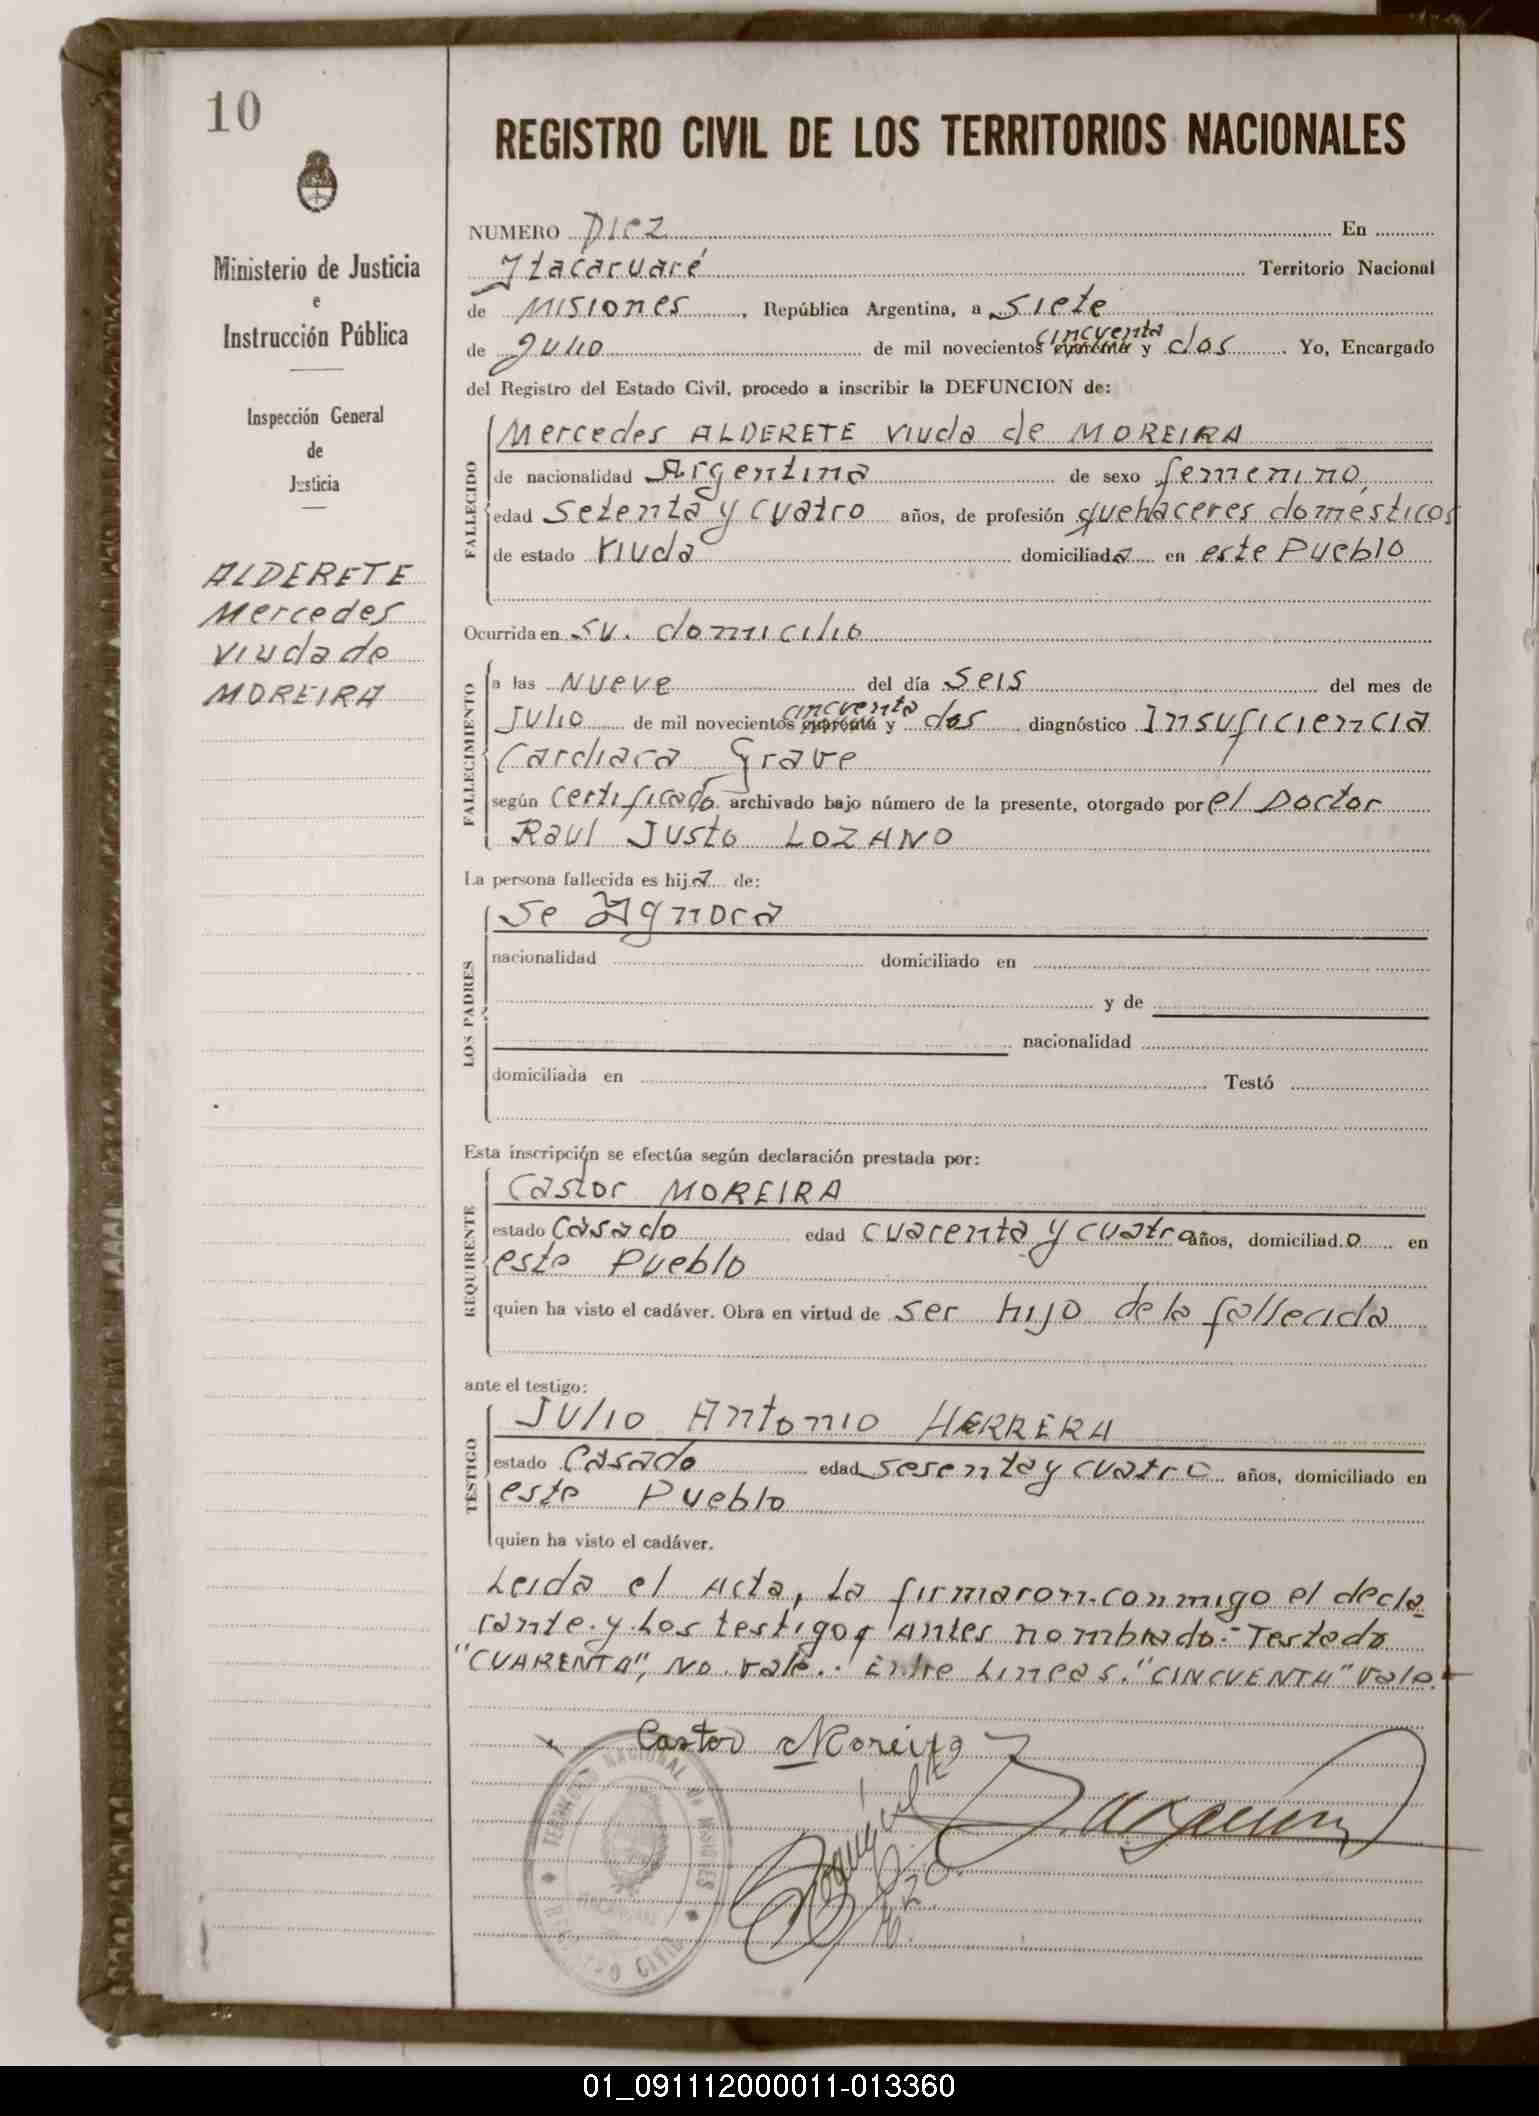 10
Ministerio de Justicia
e
Instrucción Pública
Inspección General
de
Justicia
ALDERETE
Mercedes
viuda de
MOREIRA
REGISTRO CIVIL DE LOS TERRITORIOS NACIONALES
NUMERO Diez En
Itacaruaré Territorio Nacional
de Misiones, República Argentina, a Siete
cincuenta
de Julio de mil novecientos cuarenta y dos. Yo, Encargado
del Registro del Estado Civil, procedo a inscribir la DEFUNCION de:
FALLECIDO
Mercedes ALDERETE viuda de MOREIRA
de nacionalidad Argentina de sexo femenino,
edad Setenta y cuatro años, de profesión quehaceres domésticos
de estado viuda domiciliada en este Pueblo
Ocurrida en su. domicilio
FALLECIMIENTO
a las Nueve del día Seis del mes de
cincuenta
Julio de mil novecientos cuarenta y dos diagnóstico Insuficiencia
Cardiaca Grave
según certificado archivado bajo número de la presente, otorgado por el Doctor
Raul Justo LOZANO
La persona fallecida es hija de:
LOS PADRES
Se Ignora
nacionalidad domiciliado en
y de
nacionalidad
domiciliada en Testó
Esta inscripción se efectúa según declaración prestada por:
REQUIRENTE
Castor MOREIRA
estado Casado edad cuarenta y cuatro años, domiciliad.o en
este Pueblo
quien ha visto el cadáver. Obra en virtud de ser hijo de la fallecida
ante el testigo:
TESTIGO
Julio Antonio HERRERA
estado Casado edad sesenta y cuatro años, domiciliado en
este Pueblo
quien ha visto el cadáver.
Leida el Acta, La firmaron conmigo el decla
rante y Los testigos antes nombrado.- Testado
"CUARENTA", No vale.- Entre Lineas. "CINCUENTA" vale.-
Castor Moreira
TERRITORIO NACIONAL DE MISIONES
REGISTRO CIVIL
01_091112000011-013360